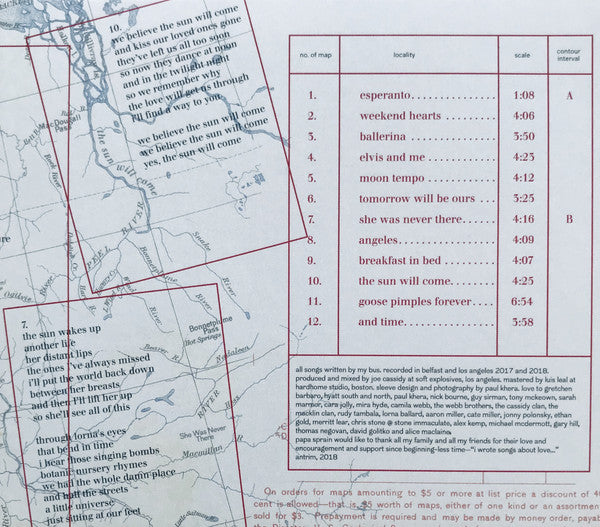 10.
we believe the sun will come
and kiss our loved one's gone
they've left us all too soon
so now they dance at noon
and in the twilight night
so we remember why
the love will get us through
I'll find a way to you
we believe the sun will come
we believe the sun will come
yes, the sun will come
the sun will come
MacDougall
Pass
PEEL
RIVER
Bonnetplume
River
Snake
River
Bonnetplume
Pass
Hot Springs
Ogilvie
River
She Was Never
There
RIVER
7.
the sun wakes up
another life
her distant lips
the ones i've always missed
i'll put the world back down
between her breasts
and then I'll lift her up
so she'll see all of this
through lorna's eyes
that bend in time
i hear those singing bombs
botanic nursery rhymes
we had the whole damn place
and half the streets
a little universe
just sitting at our feet
no. of map locality scale contour interval
1. esperanto.............. 1:08 A
2. weekend hearts ......... 4:06
3. ballerina .............. 3:50
4. elvis and me ........... 4:23
5. moon tempo ............ 4:12
6. tomorrow will be ours ... 3:25
7. she was never there...... 4:16 B
8. angeles................. 4:09
9. breakfast in bed ........ 4:07
10. the sun will come........ 4:25
11. goose pimples forever.... 6:54
12. and time................ 3:58
all songs written by my bus. recorded in belfast and los angeles 2017 and 2018.
produced and mixed by joe cassidy at soft explosives, los angeles. mastered by luis leal at
hardhome studio, boston. sleeve design and photography by paul khera. love to gretchen
barbaro, hyatt south and north, paul khera, nick bourne, guy sirman, tony mckeown, sarah
marmor, cara jolly, mira hyde, camila webb, the webb brothers, the cassidy clan, the
macklin clan, rudy tambala, lorna ballard, aaron miller, cate miller, jonny polonsky, ethan
gold, merritt lear, chris stone @ stone immaculate, alex kemp, michael mcdermott, gary hill,
thomas negovan, david golitko and alice maclaine.
papa sprain would like to thank all my family and all my friends for their love and
encouragement and support since beginning-less time—"i wrote songs about love..."
antrim, 2018
On orders for maps amounting to $5 or more at list price a discount of 40
cent is allowed—that is, $5 worth of maps, either of one kind or an assortmen
sold for $3. Prepayment is required and may be made by money order, payab